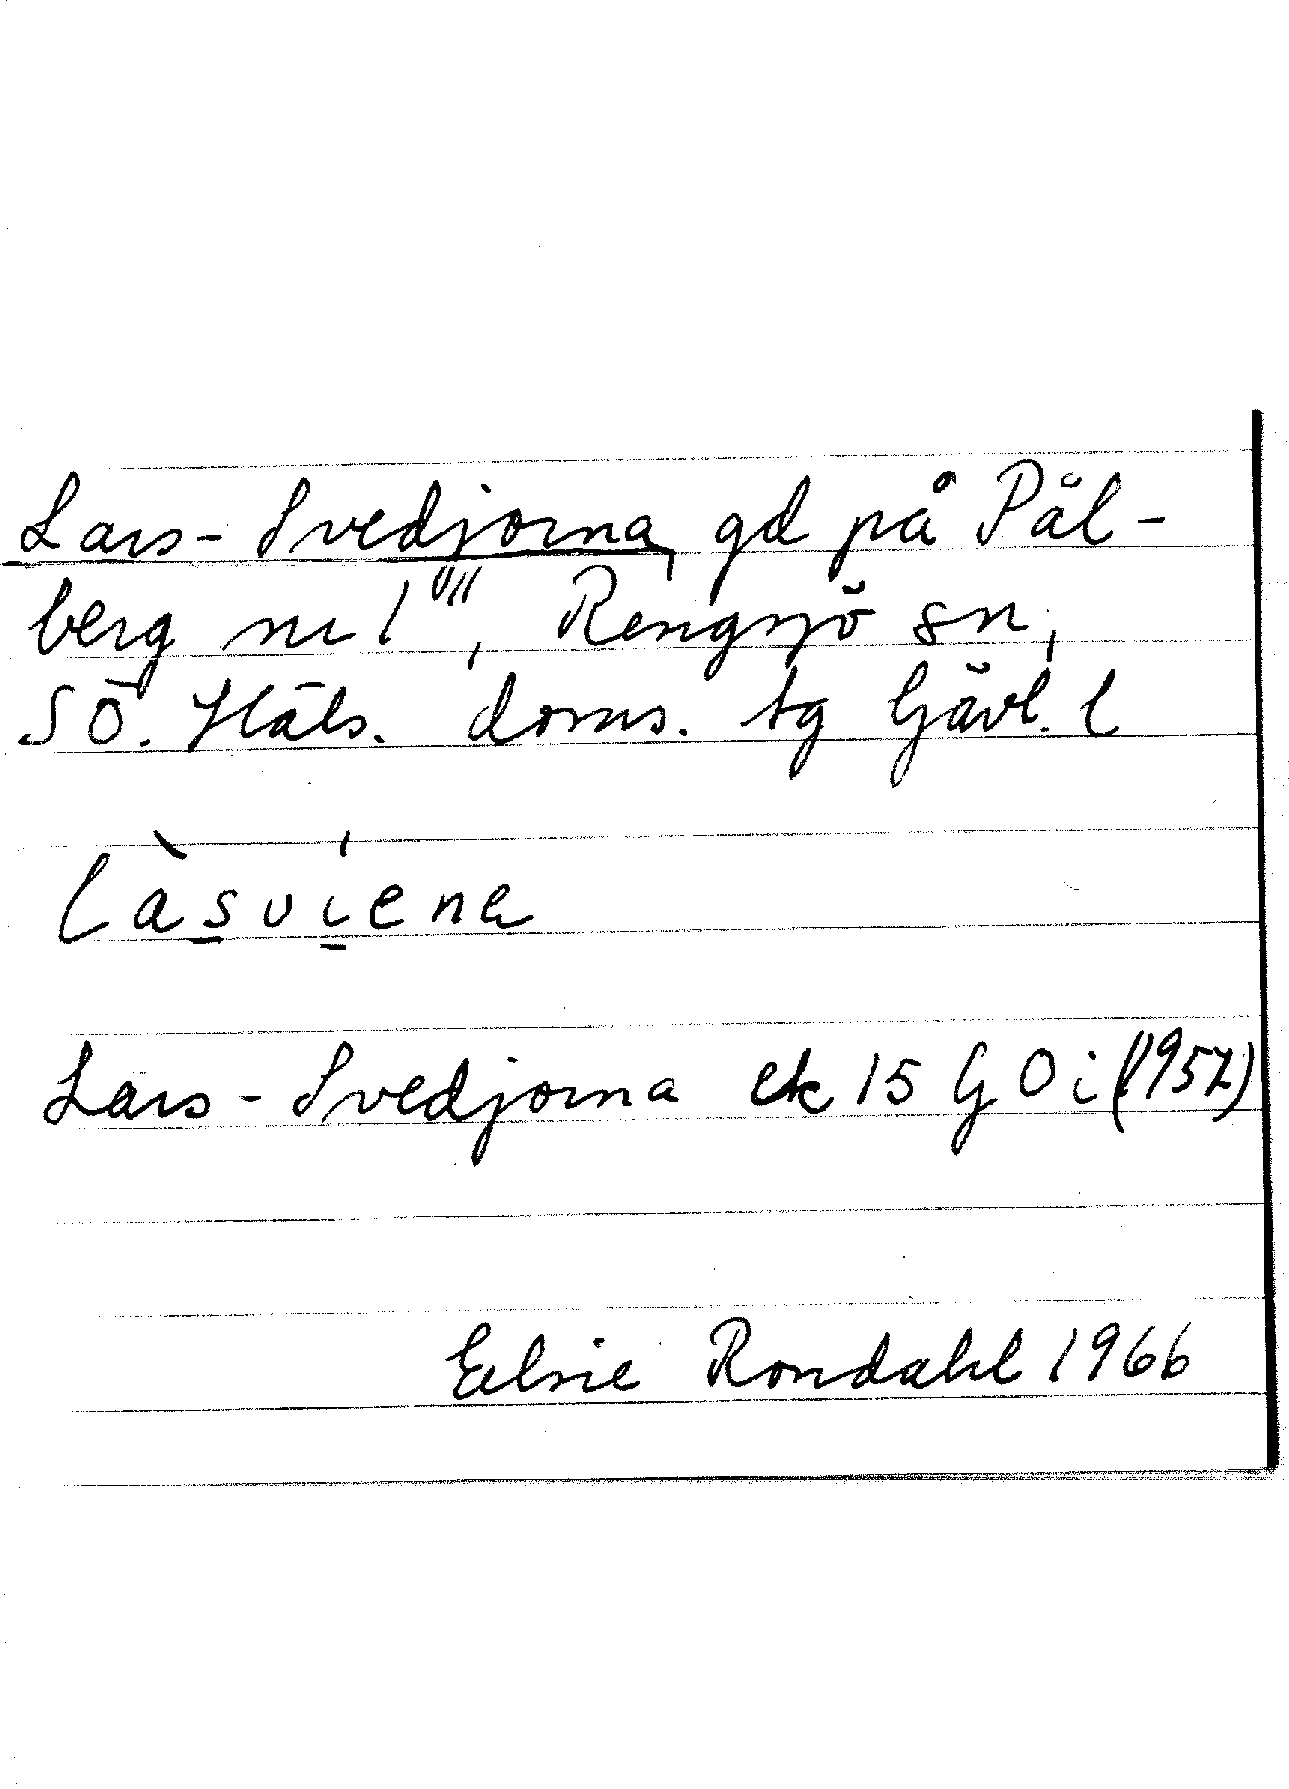 Lars-Svedjorna, gd på Päl-
berg nr 1"", Rengsjö sn,
SÖ. Häls. doms. tg Gävl. l
làsviena
Lars-Svedjorna ek 15 G O i (1957)
Elsie Rondahl 1966